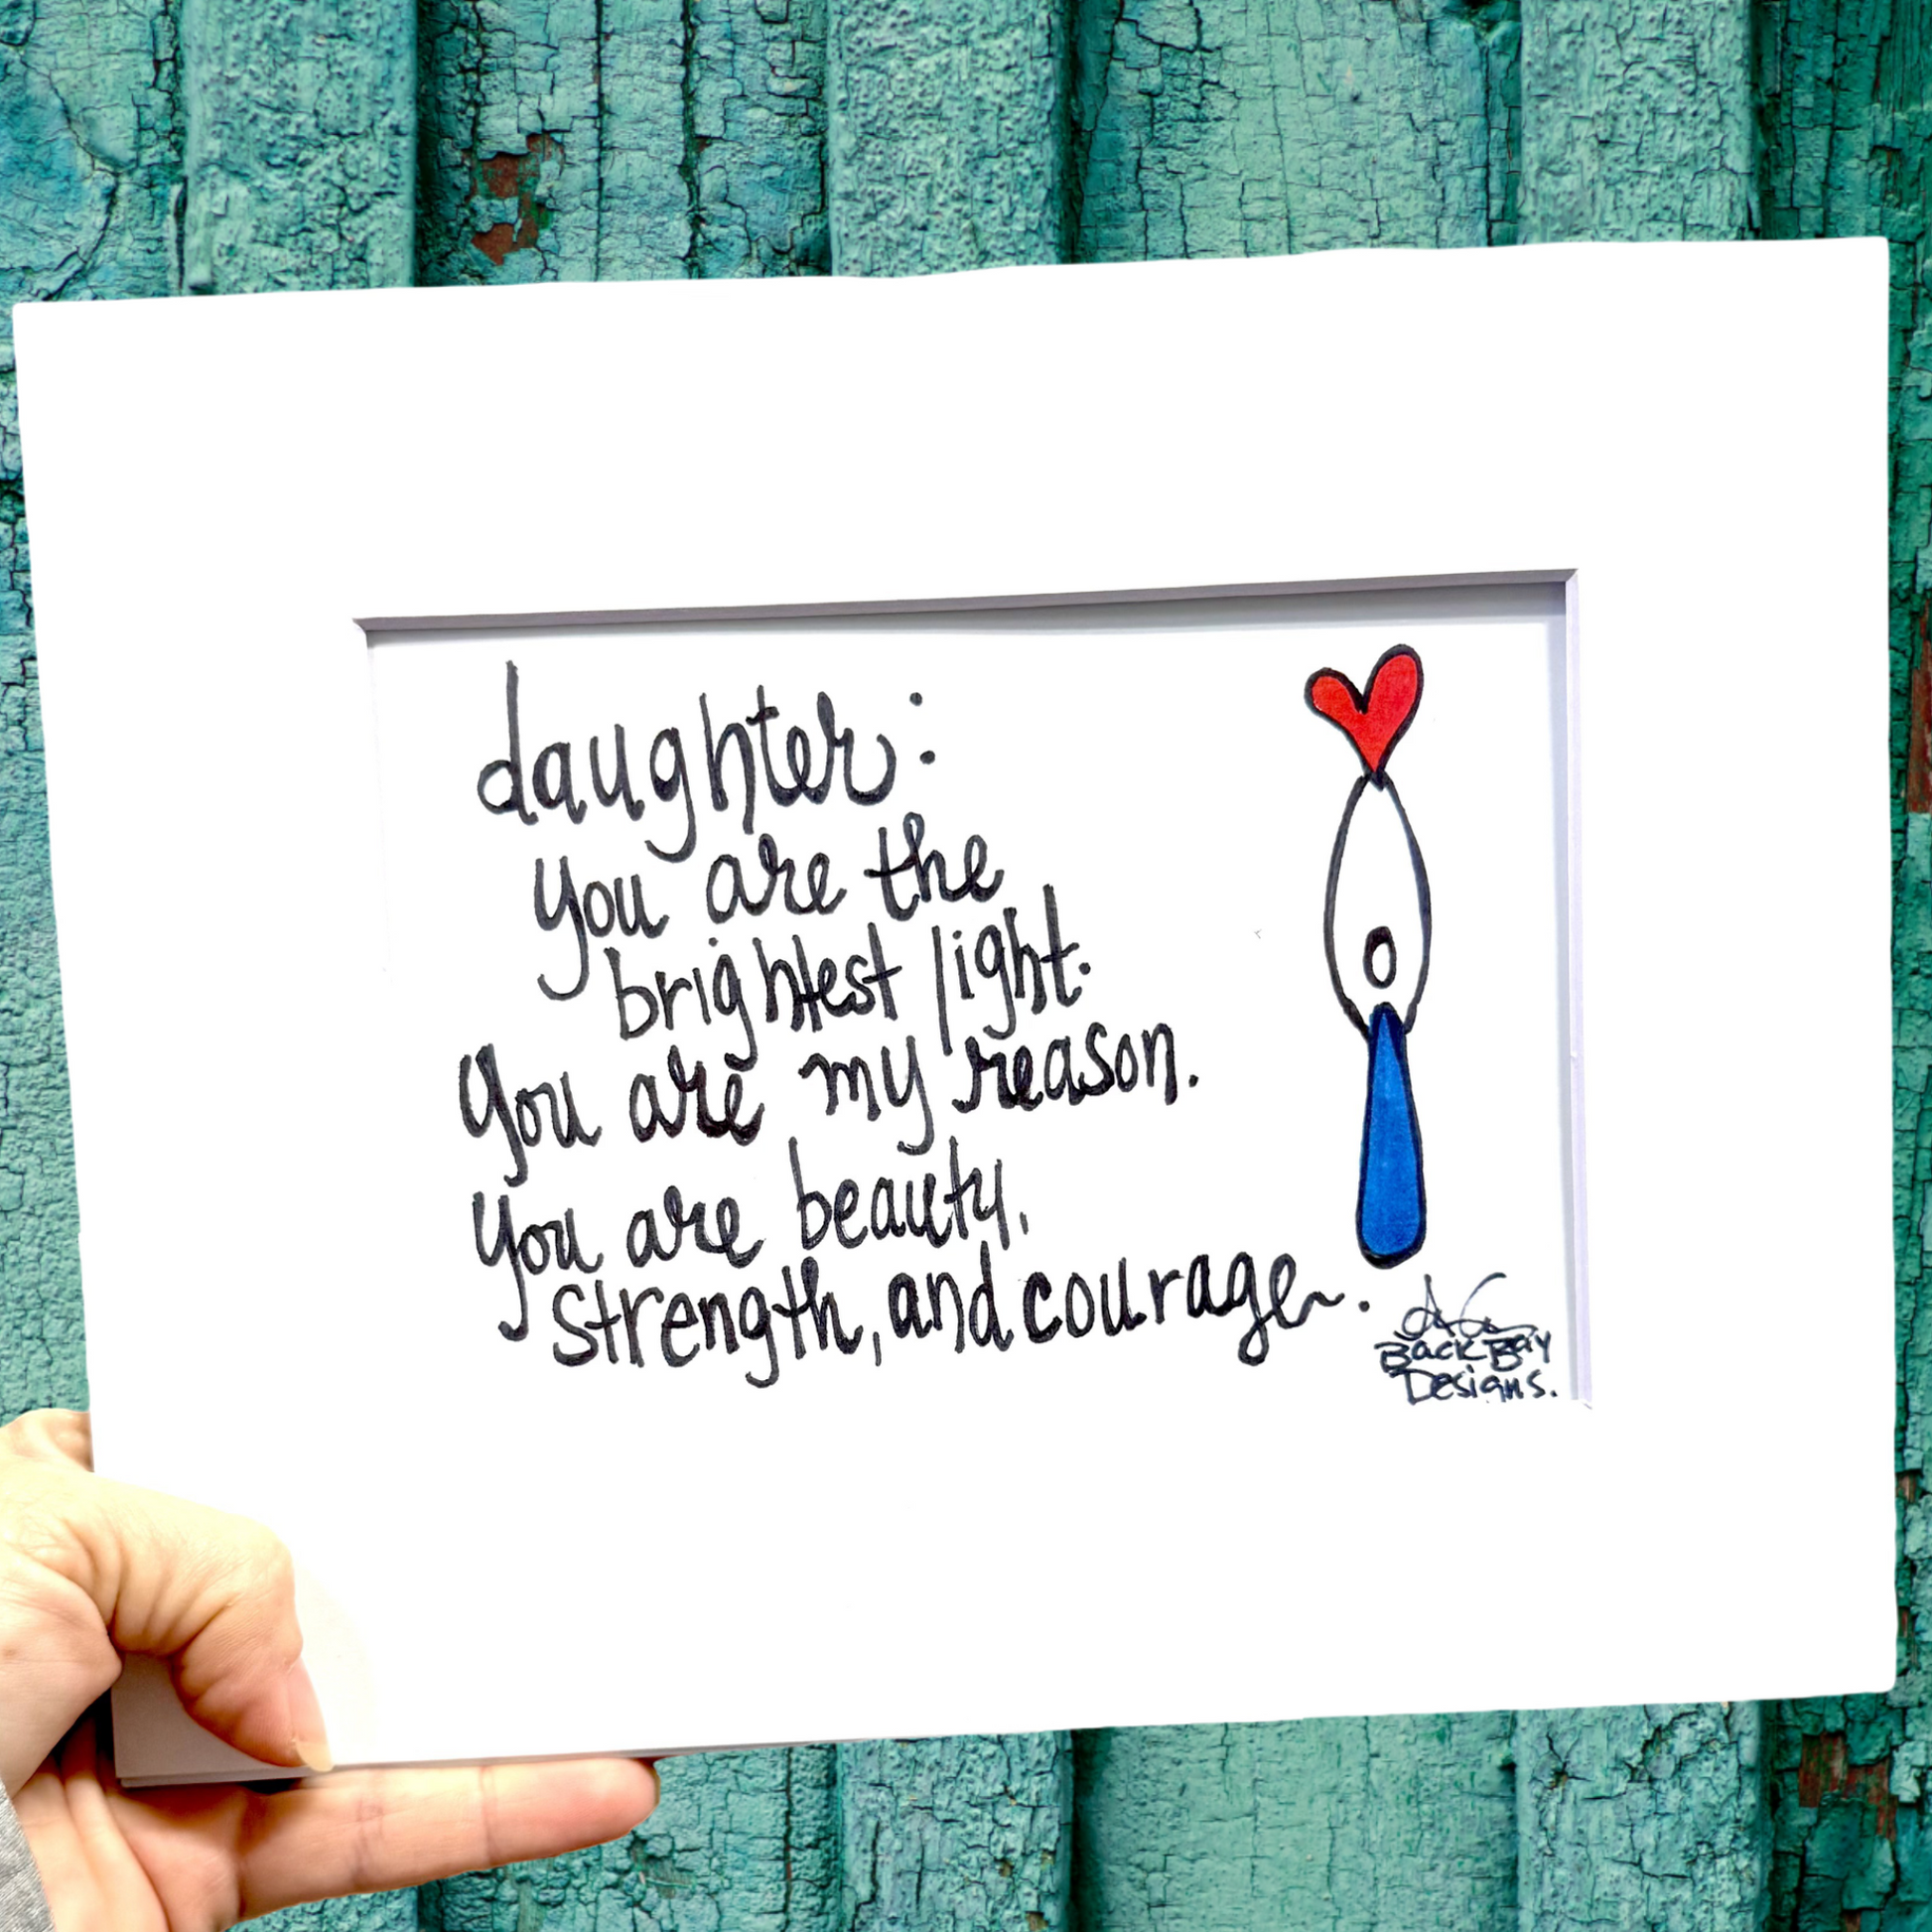 daughter:
you are the
brightest light.
You are my reason.
You are beauty,
strength, and courage.
Back Bay
Designs.